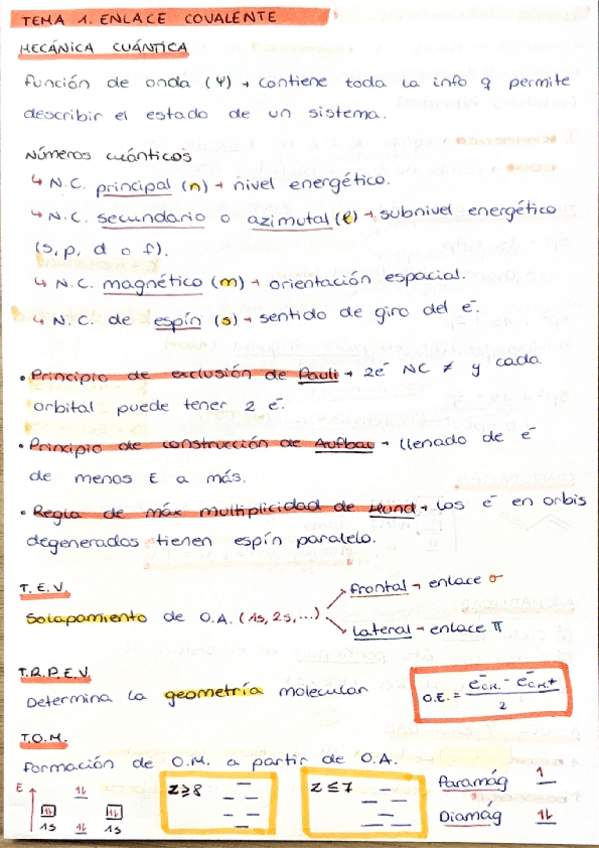 TEMA 1. ENLACE COVALENTE
MECÁNICA CUÁNTICA
Función de onda (Ψ) → contiene toda la info q permite
describir el estado de un sistema.
Números cuánticos
↳ N.C. principal (n) → nivel energético.
↳ N.C. secundario o azimutal (l) → subnivel energético
(s, p, d o f).
↳ N.C. magnético (m) → orientación espacial.
↳ N.C. de espín (s) → sentido de giro del e⁻.
• Principio de exclusión de Pauli → 2e⁻ NC ≠ y cada
orbital puede tener 2 e⁻.
• Principio de construcción de Aufbau → llenado de e⁻
de menos E a más.
• Regla de máx multiplicidad de Hund → los e⁻ en orbis
degenerados tienen espín paralelo.
T.E.V.
Solapamiento de O.A. (1s, 2s, ...)
frontal → enlace σ
lateral → enlace π
T.R.P.E.V.
Determina la geometría molecular
O.E. = (e⁻C.M. - e⁻C.M*) / 2
T.O.M.
Formación de O.M. a partir de O.A.
E ↑ ⥮ ⥮ ⥮ ⥮
1s 1s
Z ≥ 8
Z ≤ 7
Paramág ↿
Diamág ⥮